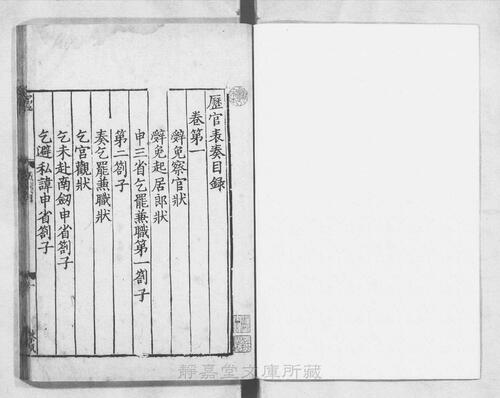 歷官表奏目録
卷第一
辭免察官狀
辭免起居郎狀
申三省乞罷兼職第一劄子
第二劄子
奏乞罷兼職狀
乞宮觀狀
乞未赴南劒申省劄子
乞避私諱申省劄子
靜嘉堂文庫所藏